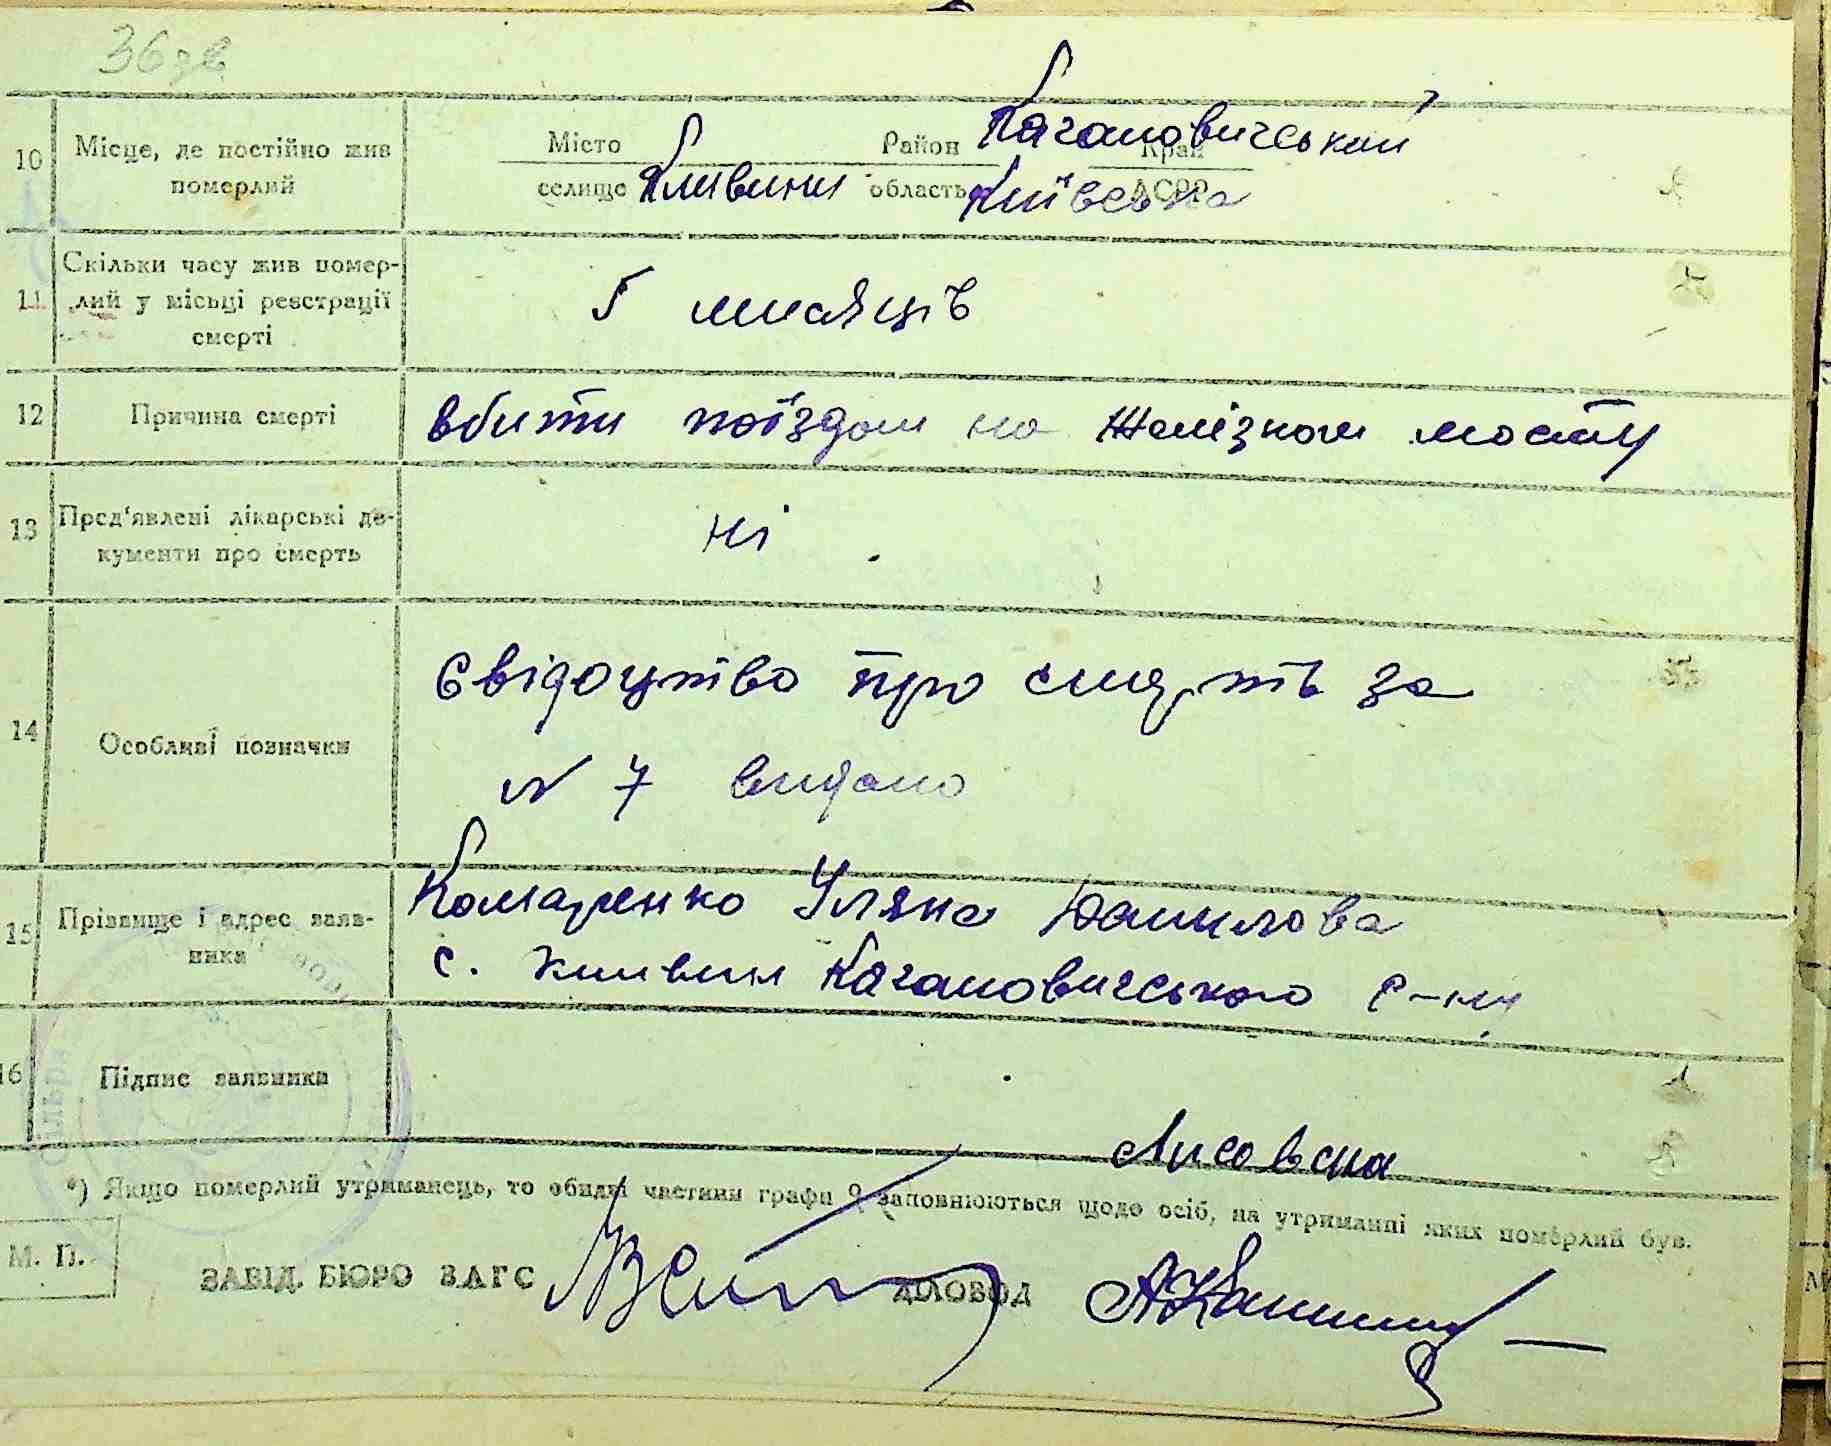 36 зв
Кагановичський
10 Місце, де постійно жив Місто Район Край
померлий селище Кливини область Київська АСРР
Скільки часу жив помер-
11 лий у місьці реєстрації 5 мисяців
смерті
12 Причина смерті вбити поїздом на Желізном мосту
13 Пред'явлені лікарські до- ні
кументи про смерть
Свідоцтво про смерть за
14 Особливі позначки
N 7 видано
Комаренко Уляна Данилова
15 Прізвище і адрес заяв-
ника с. Кливин Кагановичського р-ну
16 Підпис заявника
Лисовска
*) Якщо померлий утриманець, то обидві частини графи 9 заповнюються щодо осіб, на утриманні яких померлий був.
М. П. ЗАВІД. БЮРО ЗАГС ДІЛОВОД